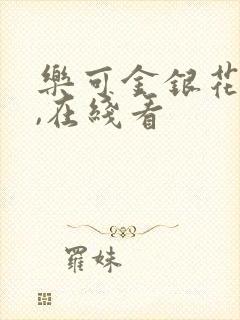 樂可金銀花
,在綫看
羅妹